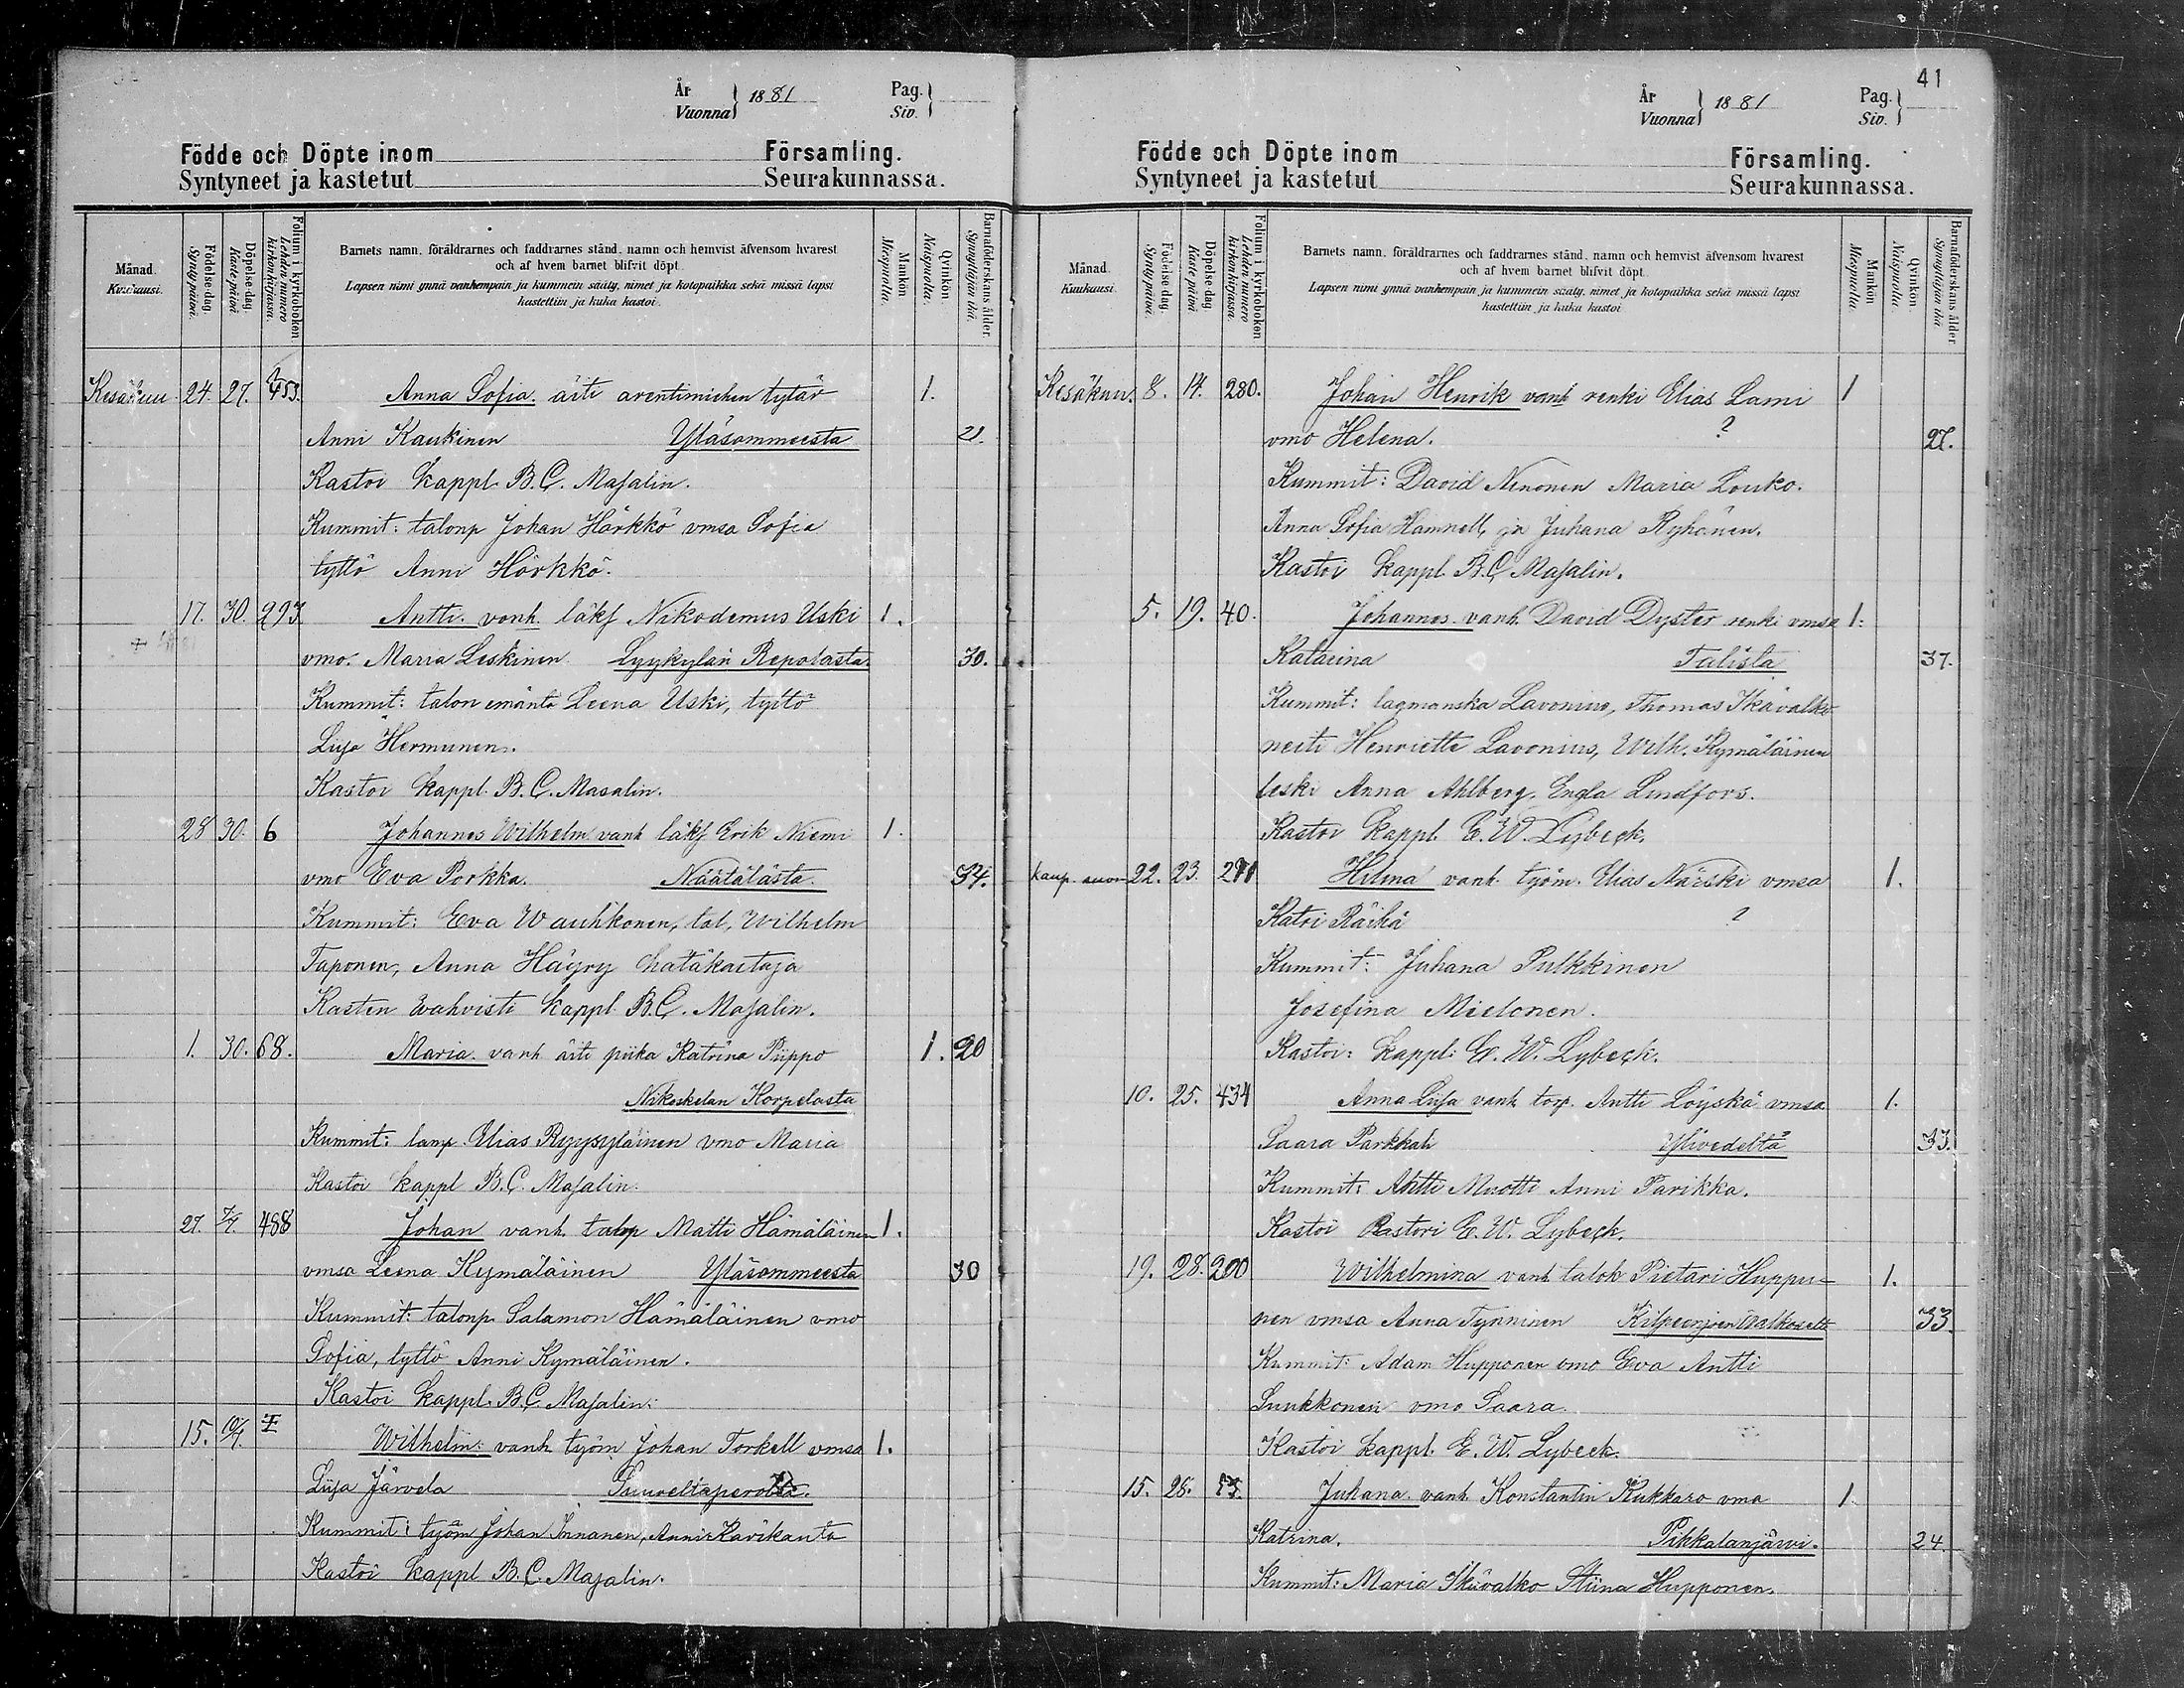 År
Vuonna } 1881
Pag.
Siv. }
Födde och Döpte inom Församling.
Syntyneet ja kastetut Seurakunnassa.
Månad. Kuukausi.
Födelse-dag. Syntypäivä.
Döpelse-dag. Kastepäivä.
Folium i kyrkoboken Lehden numero kirkonkirjassa.
Barnets namn, föräldrarnes och faddrarnes stånd, namn och hemvist äfvensom hvarest
och af hvem barnet blifvit döpt.
Lapsen nimi ynnä vanhempain ja kummein sääty, nimet ja kotopaikka sekä missä lapsi
kastettiin ja kuka kastoi.
Mankön Miespuolia.
Qvinkön Naispuolia.
Barnaföderskans ålder. Synnyttäjän ikä.
Kesäkuu 24. 27. 453. Anna Sofia. äiti arentimiehen tytär 1.
Anni Kaukinen Yläsommeesta 21.
Kastoi kappl. B. C. Masalin.
Kummit: talonp Johan Härkkö vmsa Sofia
tyttö Anni Hörkkö.
17. 30. 293 Antti. vanh. läks Nikodemus Uski 1.
vmo. Maria Leskinen Lyykylän Repolasta 30.
Kummit: talon emäntä Leena Uski, tyttö
Liisa Hermunen.
Kastoi kappl. B. C. Masalin.
28 30. 6 Johannes Wilhelm vanh läks Erik Niemi 1.
vmo Eva Porkka. Näätälästä. 34.
Kummit: Eva Wauhkonen, tal, Wilhelm
Taponen, Anna Häyry hätäkastaja
Kasten vahvisti kappl. B. C. Masalin.
1. 30. 68. Maria. vanh äiti piika Katrina Piippo 1. 20
Nikoskelan Korpelasta
Kummit: lamp. Elias Ryysyläinen vmo Maria
Kastoi kappl B. C. Masalin.
27. 7/7. 488 Johan vanh. talop Matti Hämäläinen 1.
vmsa Leena Kymäläinen Yläsommeesta 30
Kummit: talonp. Salamon Hämäläinen vmo
Sofia, tyttö Anni Kymäläinen.
Kastoi kappl. B. C. Masalin.
15. 10/7. I Wilhelm: vanh. työm Johan Torkell vmsa 1.
Liisa Järvelä Suureltaperolta.
Kummit: työm Johan Innanen, Anni Ravikanta
Kastoi kappl B. C. Masalin.
41
År
Vuonna } 1881
Pag.
Siv. }
Födde och Döpte inom Församling.
Syntyneet ja kastetut Seurakunnassa.
Månad. Kuukausi.
Födelse-dag. Syntypäivä.
Döpelse-dag. Kastepäivä.
Folium i kyrkoboken Lehden numero kirkonkirjassa.
Barnets namn, föräldrarnes och faddrarnes stånd, namn och hemvist äfvensom hvarest
och af hvem barnet blifvit döpt.
Lapsen nimi ynnä vanhempain ja kummein sääty, nimet ja kotopaikka sekä missä lapsi
kastettiin ja kuka kastoi
Mankön Miespuolia.
Qvinkön Naispuolia.
Barnaföderskans ålder Synnyttäjän ikä
Kesäkuu. 8. 14. 280. Johan Henrik vanh renki Elias Lami 1
vmo Helena. ? 27.
Kummit: David Nenonen Maria Louko.
Anna Sofia Hamnell, ja Juhana Ryhänen.
Kastoi kappl. B. C. Masalin.
5. 19. 40. Johannes vanh. David Dyster renki vmsa 1.
Katarina Talista 37.
Kummit: lagmanska Lavonius, Thomas Ikävalko
neiti Henriette Lavonius, Wilh. Kymäläinen
leski Anna Ahlberg. Engla Lindfors.
Kastoi kappl. E. W. Lybeck.
22. 23. 271 Hilma vanh. työm. Elias Närski vmsa 1.
Katri Räikä ?
Kummit: Juhana Pulkkinen
Josefina Mielonen.
Kastoi: kappl: E. W. Lybeck.
10. 25. 434 Anna Liisa vanh torp. Antti Löyskä vmsa 1.
Saara Parkkali Ylivedeltä 33.
Kummit: Antti Muotti Anni Parikka.
Kastoi Pastori E. W. Lybeck.
19. 28. 200 Wilhelmina vanh talok Pietari Huppu- 1.
nen vmsa Anna Tynninen Kilpeenjoen 33.
Kummit: Adam Hupponen vmo Eva Antti
Suukkonen vmo Saara.
Kastoi kappl. E. W. Lybeck.
15. 28. Juhana. vanh. Konstantin Kukkaro vma 1
Katrina. Pikkalanjärvi. 24.
Kummit: Maria Ikävalko Stiina Hupponen.